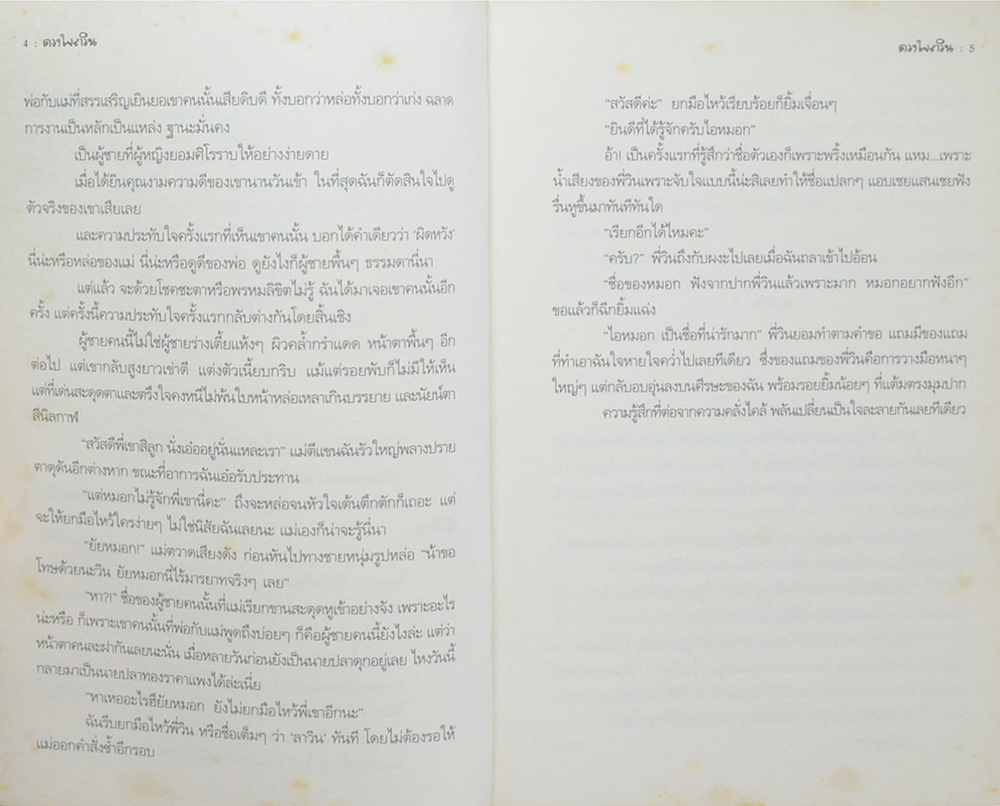 4 : ดวงใจลาวิน
พ่อกับแม่ที่สรรเสริญเยินยอเขาคนนั้นเสียดิบดี ทั้งบอกว่าหล่อทั้งบอกว่าเก่ง ฉลาด
การงานเป็นหลักเป็นแหล่ง ฐานะมั่นคง
เป็นผู้ชายที่ผู้หญิงยอมศิโรราบให้อย่างง่ายดาย
เมื่อได้ยินคุณงามความดีของเขานานวันเข้า ในที่สุดฉันก็ตัดสินใจไปดู
ตัวจริงของเขาเสียเลย
และความประทับใจครั้งแรกที่เห็นเขาคนนั้น บอกได้คำเดียวว่า ‘ผิดหวัง’
นี่น่ะหรือหล่อของแม่ นี่น่ะหรือดูดีของพ่อ ดูยังไงก็ผู้ชายพื้นๆ ธรรมดานี่นา
แต่แล้ว จะด้วยโชคชะตาหรือพรหมลิขิตไม่รู้ ฉันได้มาเจอเขาคนนั้นอีก
ครั้ง แต่ครั้งนี้ความประทับใจครั้งแรกกลับต่างกันโดยสิ้นเชิง
ผู้ชายคนนี้ไม่ใช่ผู้ชายร่างเตี้ยแห้งๆ ผิวคล้ำกรำแดด หน้าตาพื้นๆ อีก
ต่อไป แต่เขากลับสูงยาวเข่าดี แต่งตัวเนี้ยบกริบ แม้แต่รอยพับก็ไม่มีให้เห็น
แต่ที่เด่นสะดุดตาและตรึงใจคงหนีไม่พ้นใบหน้าหล่อเหลาเกินบรรยาย และนัยน์ตา
สีนิลกาฬ
“สวัสดีพี่เขาสิลูก นั่งเอ๋ออยู่นั่นแหละเรา” แม่ตีแขนฉันรัวใหญ่พลางปราย
ตาดุดันอีกต่างหาก ขณะที่อาการฉันเอ๋อรับประทาน
“แต่หมอกไม่รู้จักพี่เขานี่คะ” ถึงจะหล่อจนหัวใจเต้นตึกตักก็เถอะ แต่
จะให้ยกมือไหว้ใครง่ายๆ ไม่ใช่นิสัยฉันเลยนะ แม่เองก็น่าจะรู้นี่นา
“ยัยหมอก!” แม่ตวาดเสียงดัง ก่อนหันไปทางชายหนุ่มรูปหล่อ “น้าขอ
โทษด้วยนะวิน ยัยหมอกนี่ไร้มารยาทจริงๆ เลย”
“หา?!” ชื่อของผู้ชายคนนั้นที่แม่เรียกขานสะดุดหูเข้าอย่างจัง เพราะอะไร
น่ะหรือ ก็เพราะเขาคนนั้นที่พ่อกับแม่พูดถึงบ่อยๆ ก็คือผู้ชายคนนี้ยังไงล่ะ แต่ว่า
หน้าตาคนละฝากันเลยนะนั่น เมื่อหลายวันก่อนยังเป็นนายปลาดุกอยู่เลย ไหงวันนี้
กลายมาเป็นนายปลาทองราคาแพงได้ล่ะเนี่ย
“หาเหออะไรฮึยัยหมอก ยังไม่ยกมือไหว้พี่เขาอีกนะ”
ฉันรีบยกมือไหว้พี่วิน หรือชื่อเต็มๆ ว่า ‘ลาวิน’ ทันที โดยไม่ต้องรอให้
แม่ออกคำสั่งซ้ำอีกรอบ
ดวงใจลาวิน : 5
“สวัสดีค่ะ” ยกมือไหว้เรียบร้อยก็ยิ้มเจื่อนๆ
“ยินดีที่ได้รู้จักครับไอหมอก”
อ้า! เป็นครั้งแรกที่รู้สึกว่าชื่อตัวเองก็เพราะพริ้งเหมือนกัน แหม...เพราะ
น้ำเสียงของพี่วินเพราะจับใจแบบนี้น่ะสิเลยทำให้ชื่อแปลกๆ แอบเชยแสนเชยฟัง
รื่นหูขึ้นมาทันทีทันใด
“เรียกอีกได้ไหมคะ”
“ครับ?” พี่วินถึงกับผงะไปเลยเมื่อฉันถลาเข้าไปอ้อน
“ชื่อของหมอก ฟังจากปากพี่วินแล้วเพราะมาก หมอกอยากฟังอีก”
ขอแล้วก็ฉีกยิ้มแฉ่ง
“ไอหมอก เป็นชื่อที่น่ารักมาก” พี่วินยอมทำตามคำขอ แถมมีของแถม
ที่ทำเอาฉันใจหายใจคว่ำไปเลยทีเดียว ซึ่งของแถมของพี่วินคือการวางมือหนาๆ
ใหญ่ๆ แต่กลับอบอุ่นลงบนศีรษะของฉัน พร้อมรอยยิ้มน้อยๆ ที่แต้มตรงมุมปาก
ความรู้สึกที่ต่อจากความคลั่งไคล้ พลันเปลี่ยนเป็นใจละลายกันเลยทีเดียว